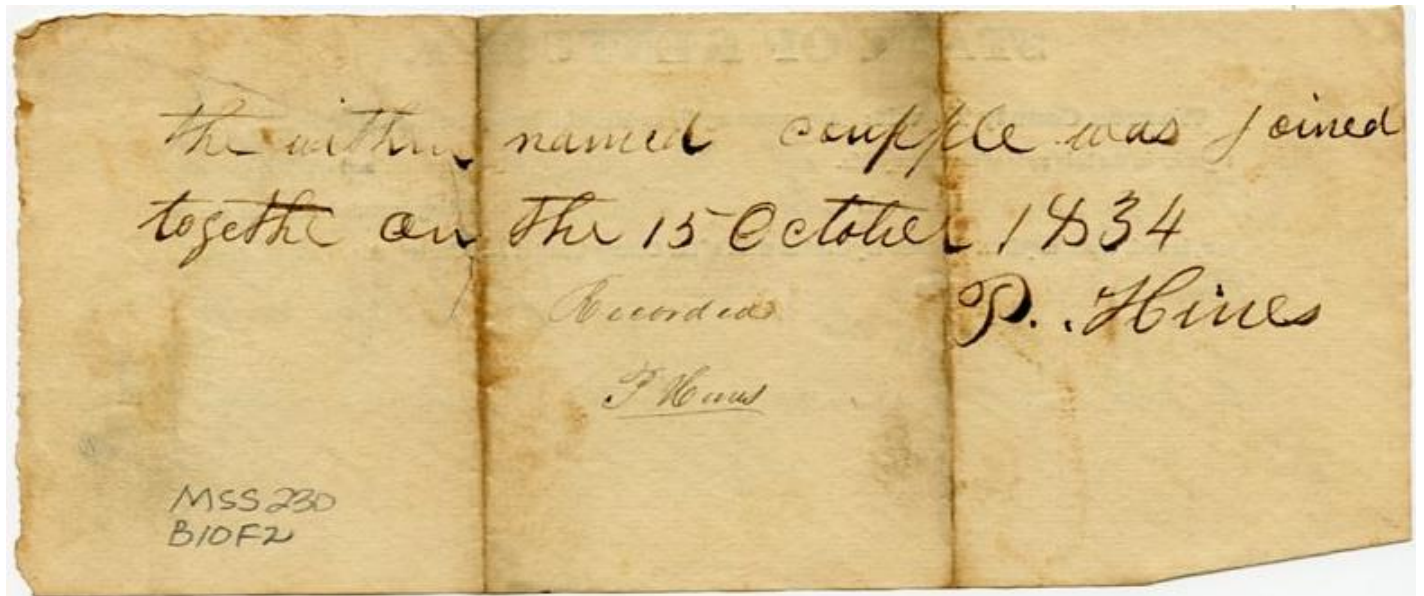 the within named coupple was joined
togethe on the 15 October 1834
P. . Hines
Recorded
P Hines
MSS 230
B10F2